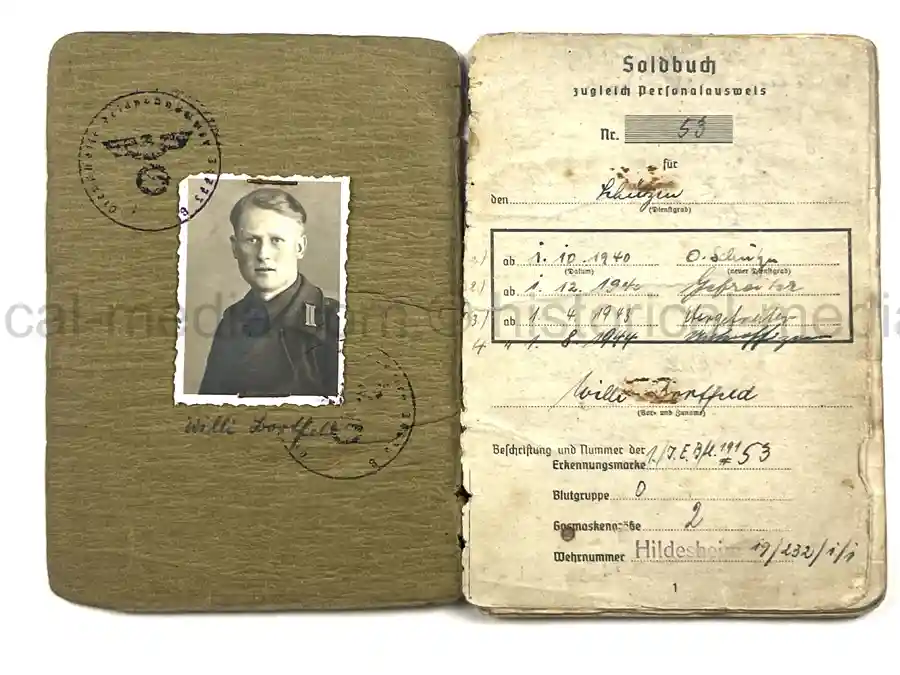 Willi Bortfeld
Soldbuch
zugleich Personalausweis
Nr. 53
für
den Schützen
(Dienstgrad)
ab 1. 10. 1940 O. Schütze
(Datum) (neuer Dienstgrad)
2.) ab 1. 12. 1940 Gefreiter
3.) ab 1. 4. 1943 Obergefreiter
4. " 1. 8. 1944 Unteroffizier
Willi Bortfeld
(Vor- und Zuname)
Beschriftung und Nummer der
Erkennungsmarke 1./J.E.Btl. 191 # 53
Blutgruppe O
Gasmaskengröße 2
Wehrnummer Hildesheim 19/232/1/1
1